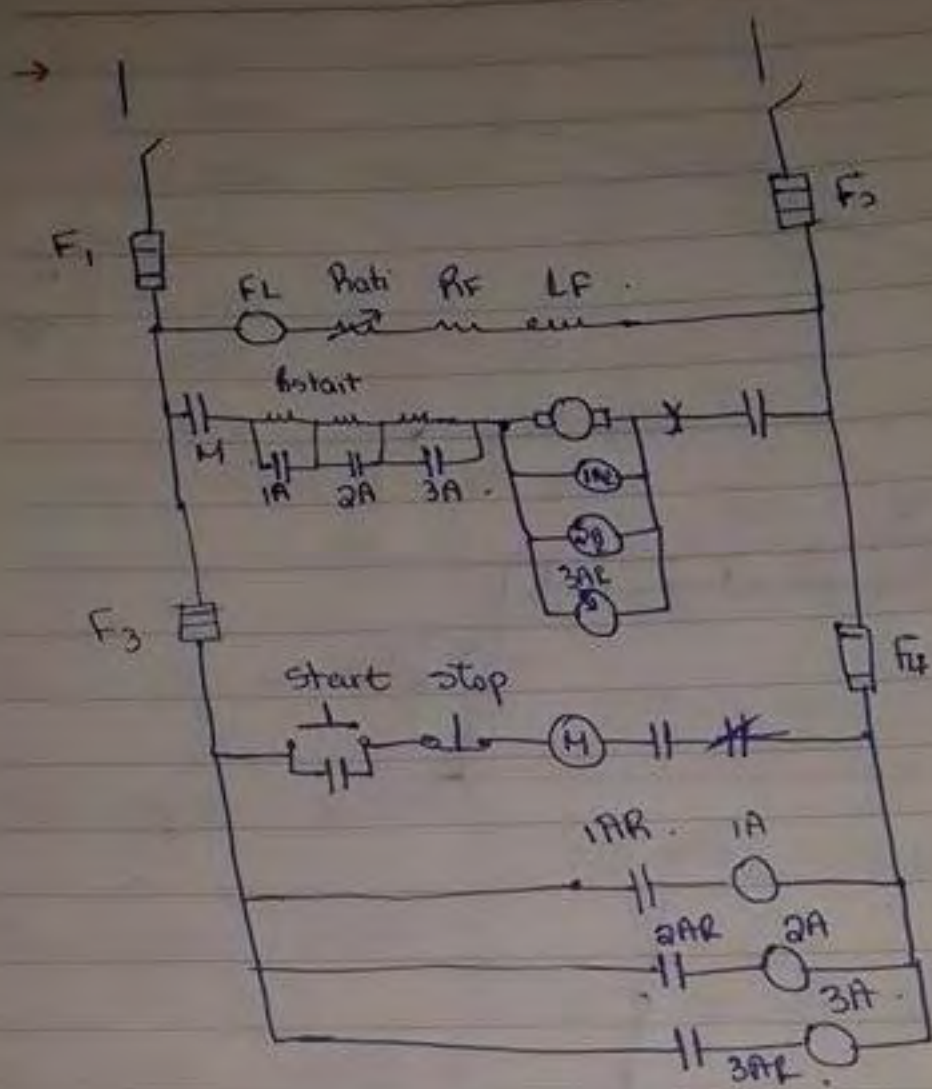 F1
F2
FL Rati RF LF
Rstart
M
1A 2A 3A
1AR
3AR
F3
F4
start stop
M
1AR 1A
2AR 2A
3A
3AR